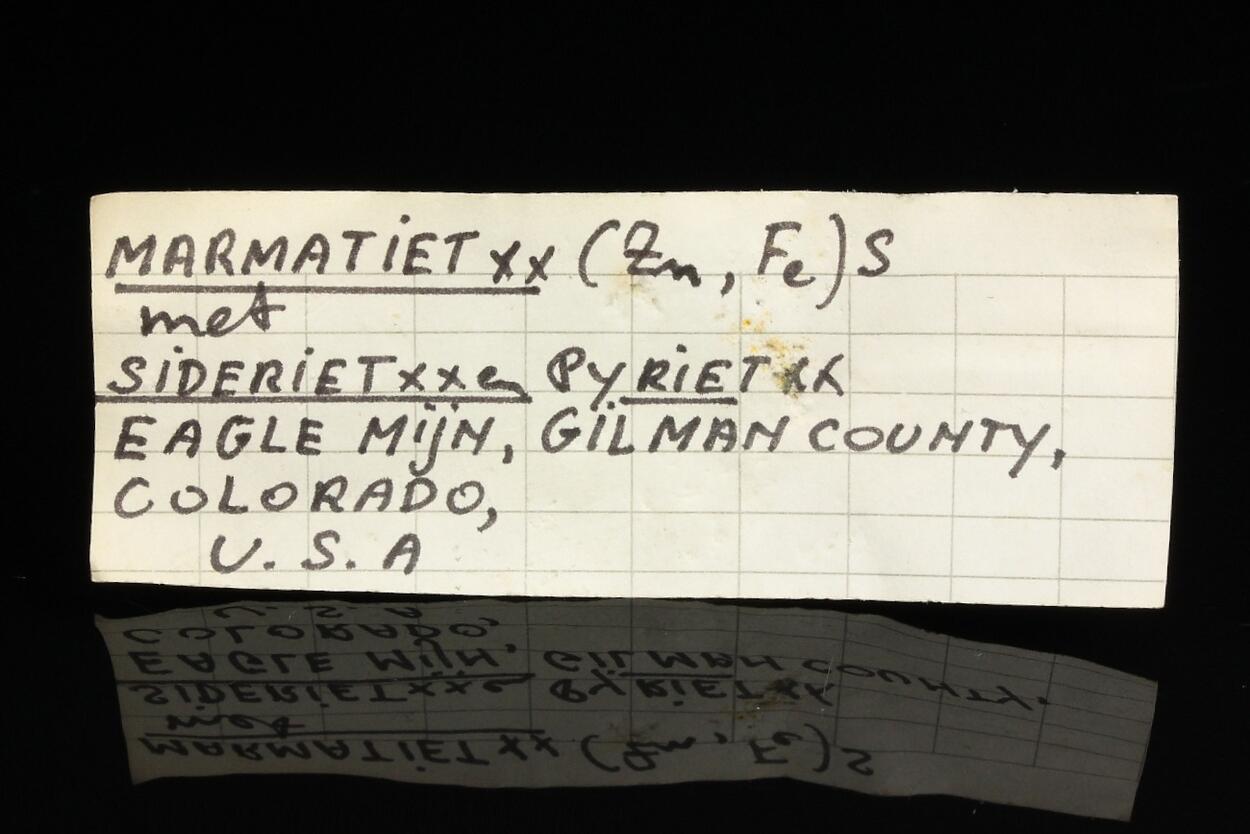 MARMATiET xx (Zn, Fe)S
met
SiDERiET xx en PyRiET xx
EAGLE Mijn, GiLMAN COUNTY,
COLORADO,
U. S. A